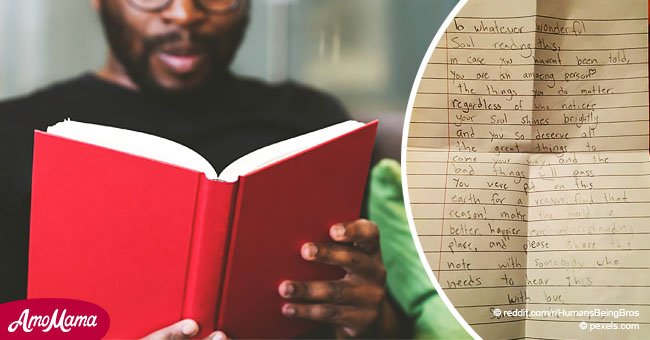 To whatever wonderful
Soul reading this,
in case you haven't been told,
you are an amazing person
the things you do matter.
regardless of who notices
your soul shines brightly
and you so deserve all
the great things to
come your way and the
bad things will pass
You were put on this
earth for a reason, find that
reason, make the world a
better, happier understanding
place, and please share this
note with somebody who
needs to hear this
with love,
AmoMama
© reddit.com/r/HumansBeingBros
© pexels.com